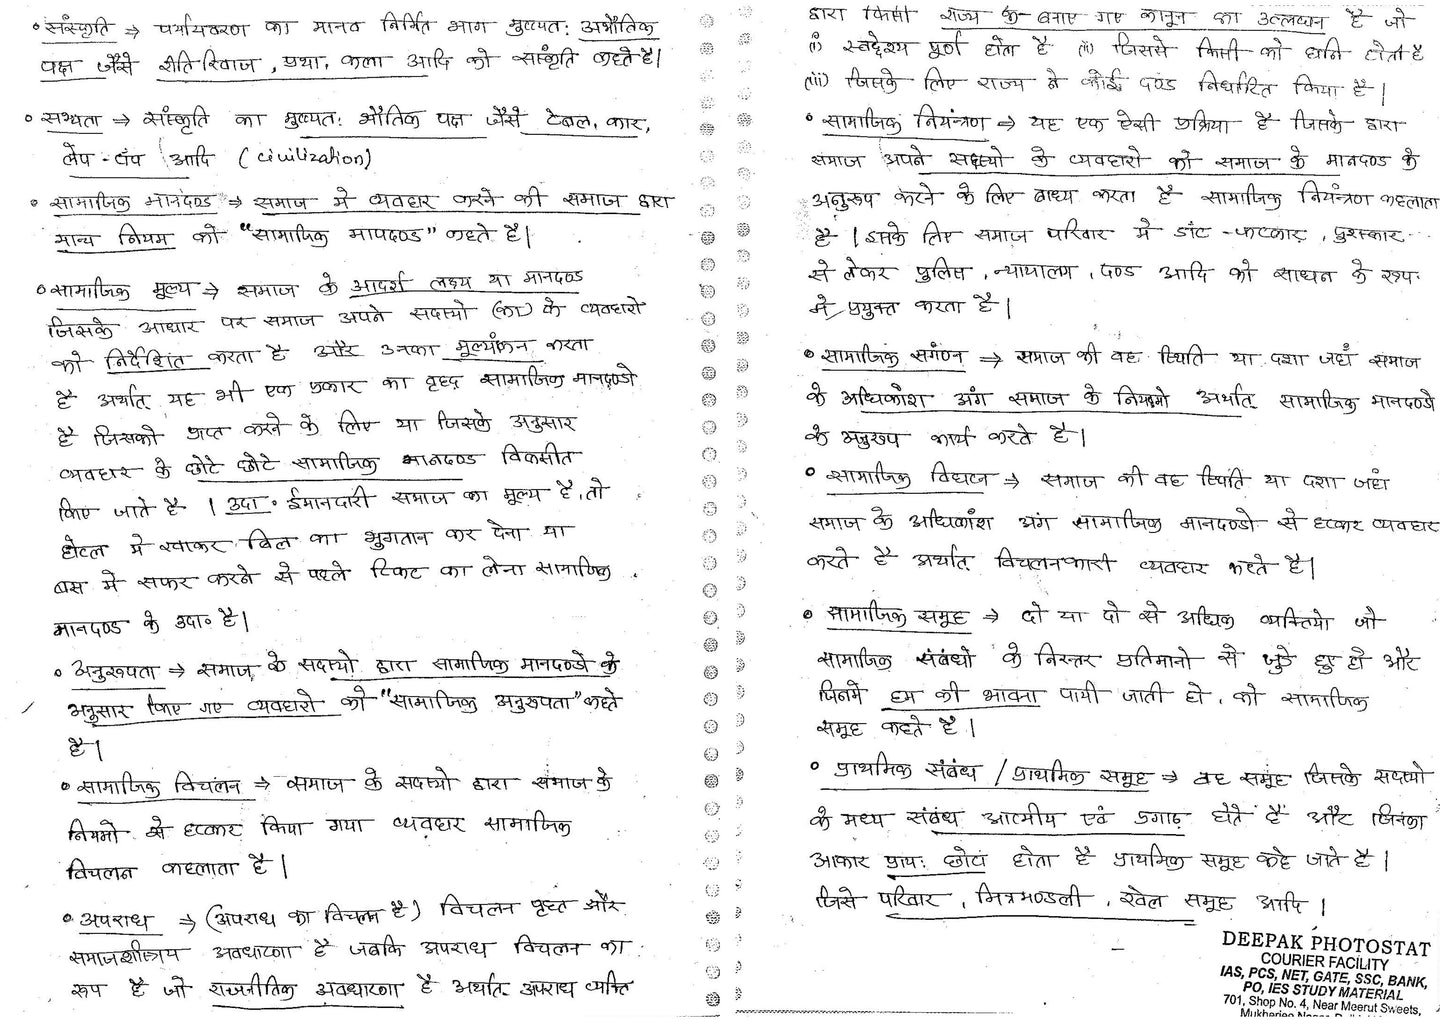 • संस्कृति ⇒ पर्यावरण का मानव निर्मित भाग मुख्यतः अभौतिक
पक्ष जैसे रीति-रिवाज, प्रथा, कला आदि को संस्कृति कहते है।
• सभ्यता ⇒ संस्कृति का मुख्यतः भौतिक पक्ष जैसे टेबल, कार,
लेप-टॉप आदि (civilization)
• सामाजिक मानदण्ड ⇒ समाज मे व्यवहार करने की समाज द्वारा
मान्य नियम को "सामाजिक मापदण्ड" कहते है।
• सामाजिक मूल्य ⇒ समाज के आदर्श लक्ष्य या मानदण्ड
जिसके आधार पर समाज अपने सदस्यो (का) के व्यवहारो
को निर्देशित करता है और उनका मूल्यांकन करता
है अर्थात् यह भी एक प्रकार का वृहद सामाजिक मानदण्डो
है जिसको प्राप्त करने के लिए या जिसके अनुसार
व्यवहार के छोटे छोटे सामाजिक मानदण्ड विकसीत
किए जाते है । उदा॰ ईमानदारी समाज का मूल्य है, तो
होटल मे खाकर बिल का भुगतान कर देना या
बस में सफर करने से पहले टिकट का लेना सामाजिक
मानदण्ड के उदा॰ है।
• अनुरूपता ⇒ समाज के सदस्यो द्वारा सामाजिक मानदण्डो के
अनुसार किए गए व्यवहारो को "सामाजिक अनुरूपता" कहते
है।
• सामाजिक विचलन ⇒ समाज के सदस्यो द्वारा समाज के
नियमो से हटकर किया गया व्यवहार सामाजिक
विचलन कहलाता है।
• अपराध ⇒ (अपराध का विचलन है) विचलन वृहत और
समाजशास्त्रीय अवधारणा है जबकि अपराध विचलन का
रूप है जो राजनीतिक अवधारणा है अर्थात् अपराध व्यक्ति
द्वारा किसी राज्य के बनाए गए कानून का उल्लंघन है जो
(i) स्वद्देश्य पूर्ण होता है (ii) जिससे किसी को हानि होती है
(iii) जिसके लिए राज्य ने कोई दण्ड निर्धारित किया है।
• सामाजिक नियंत्रण ⇒ यह एक ऐसी प्रक्रिया है जिसके द्वारा
समाज अपने सदस्यो के व्यवहारो को समाज के मानदण्ड के
अनुरूप करने के लिए बाध्य करता है सामाजिक नियंत्रण कहलाता
है । इसके लिए समाज परिवार मे डांट-फटकार, पुरस्कार
से लेकर पुलिस, न्यायालय, दण्ड आदि को साधन के रूप
मे प्रयुक्त करता है।
• सामाजिक संगठन ⇒ समाज की वह स्थिति या दशा जहाँ समाज
के अधिकांश अंग समाज के नियमो अर्थात् सामाजिक मानदण्डो
के अनुरूप कार्य करते है।
• सामाजिक विघटन ⇒ समाज की वह स्थिति या दशा जहां
समाज के अधिकांश अंग सामाजिक मानदण्डो से हटकर व्यवहार
करते है अर्थात् विचलनकारी व्यवहार करते है।
• सामाजिक समूह ⇒ दो या दो से अधिक व्यक्तियो जो
सामाजिक संबंधो के निरन्तर प्रतिमानो से जुड़े हुए हो और
जिनमे हम की भावना पायी जाती हो, को सामाजिक
समूह कहते है।
• प्राथमिक संबंध / प्राथमिक समूह ⇒ वह समूह जिसके सदस्यो
के मध्य संबंध आत्मीय एवं प्रगाढ़ होते है और जिनका
आकार प्रायः छोटा होता है प्राथमिक समूह कहे जाते है।
जिसे परिवार, मित्रमण्डली, खेल समूह आदि।
DEEPAK PHOTOSTAT
COURIER FACILITY
IAS, PCS, NET, GATE, SSC, BANK,
PO, IES STUDY MATERIAL
701, Shop No. 4, Near Meerut Sweets,